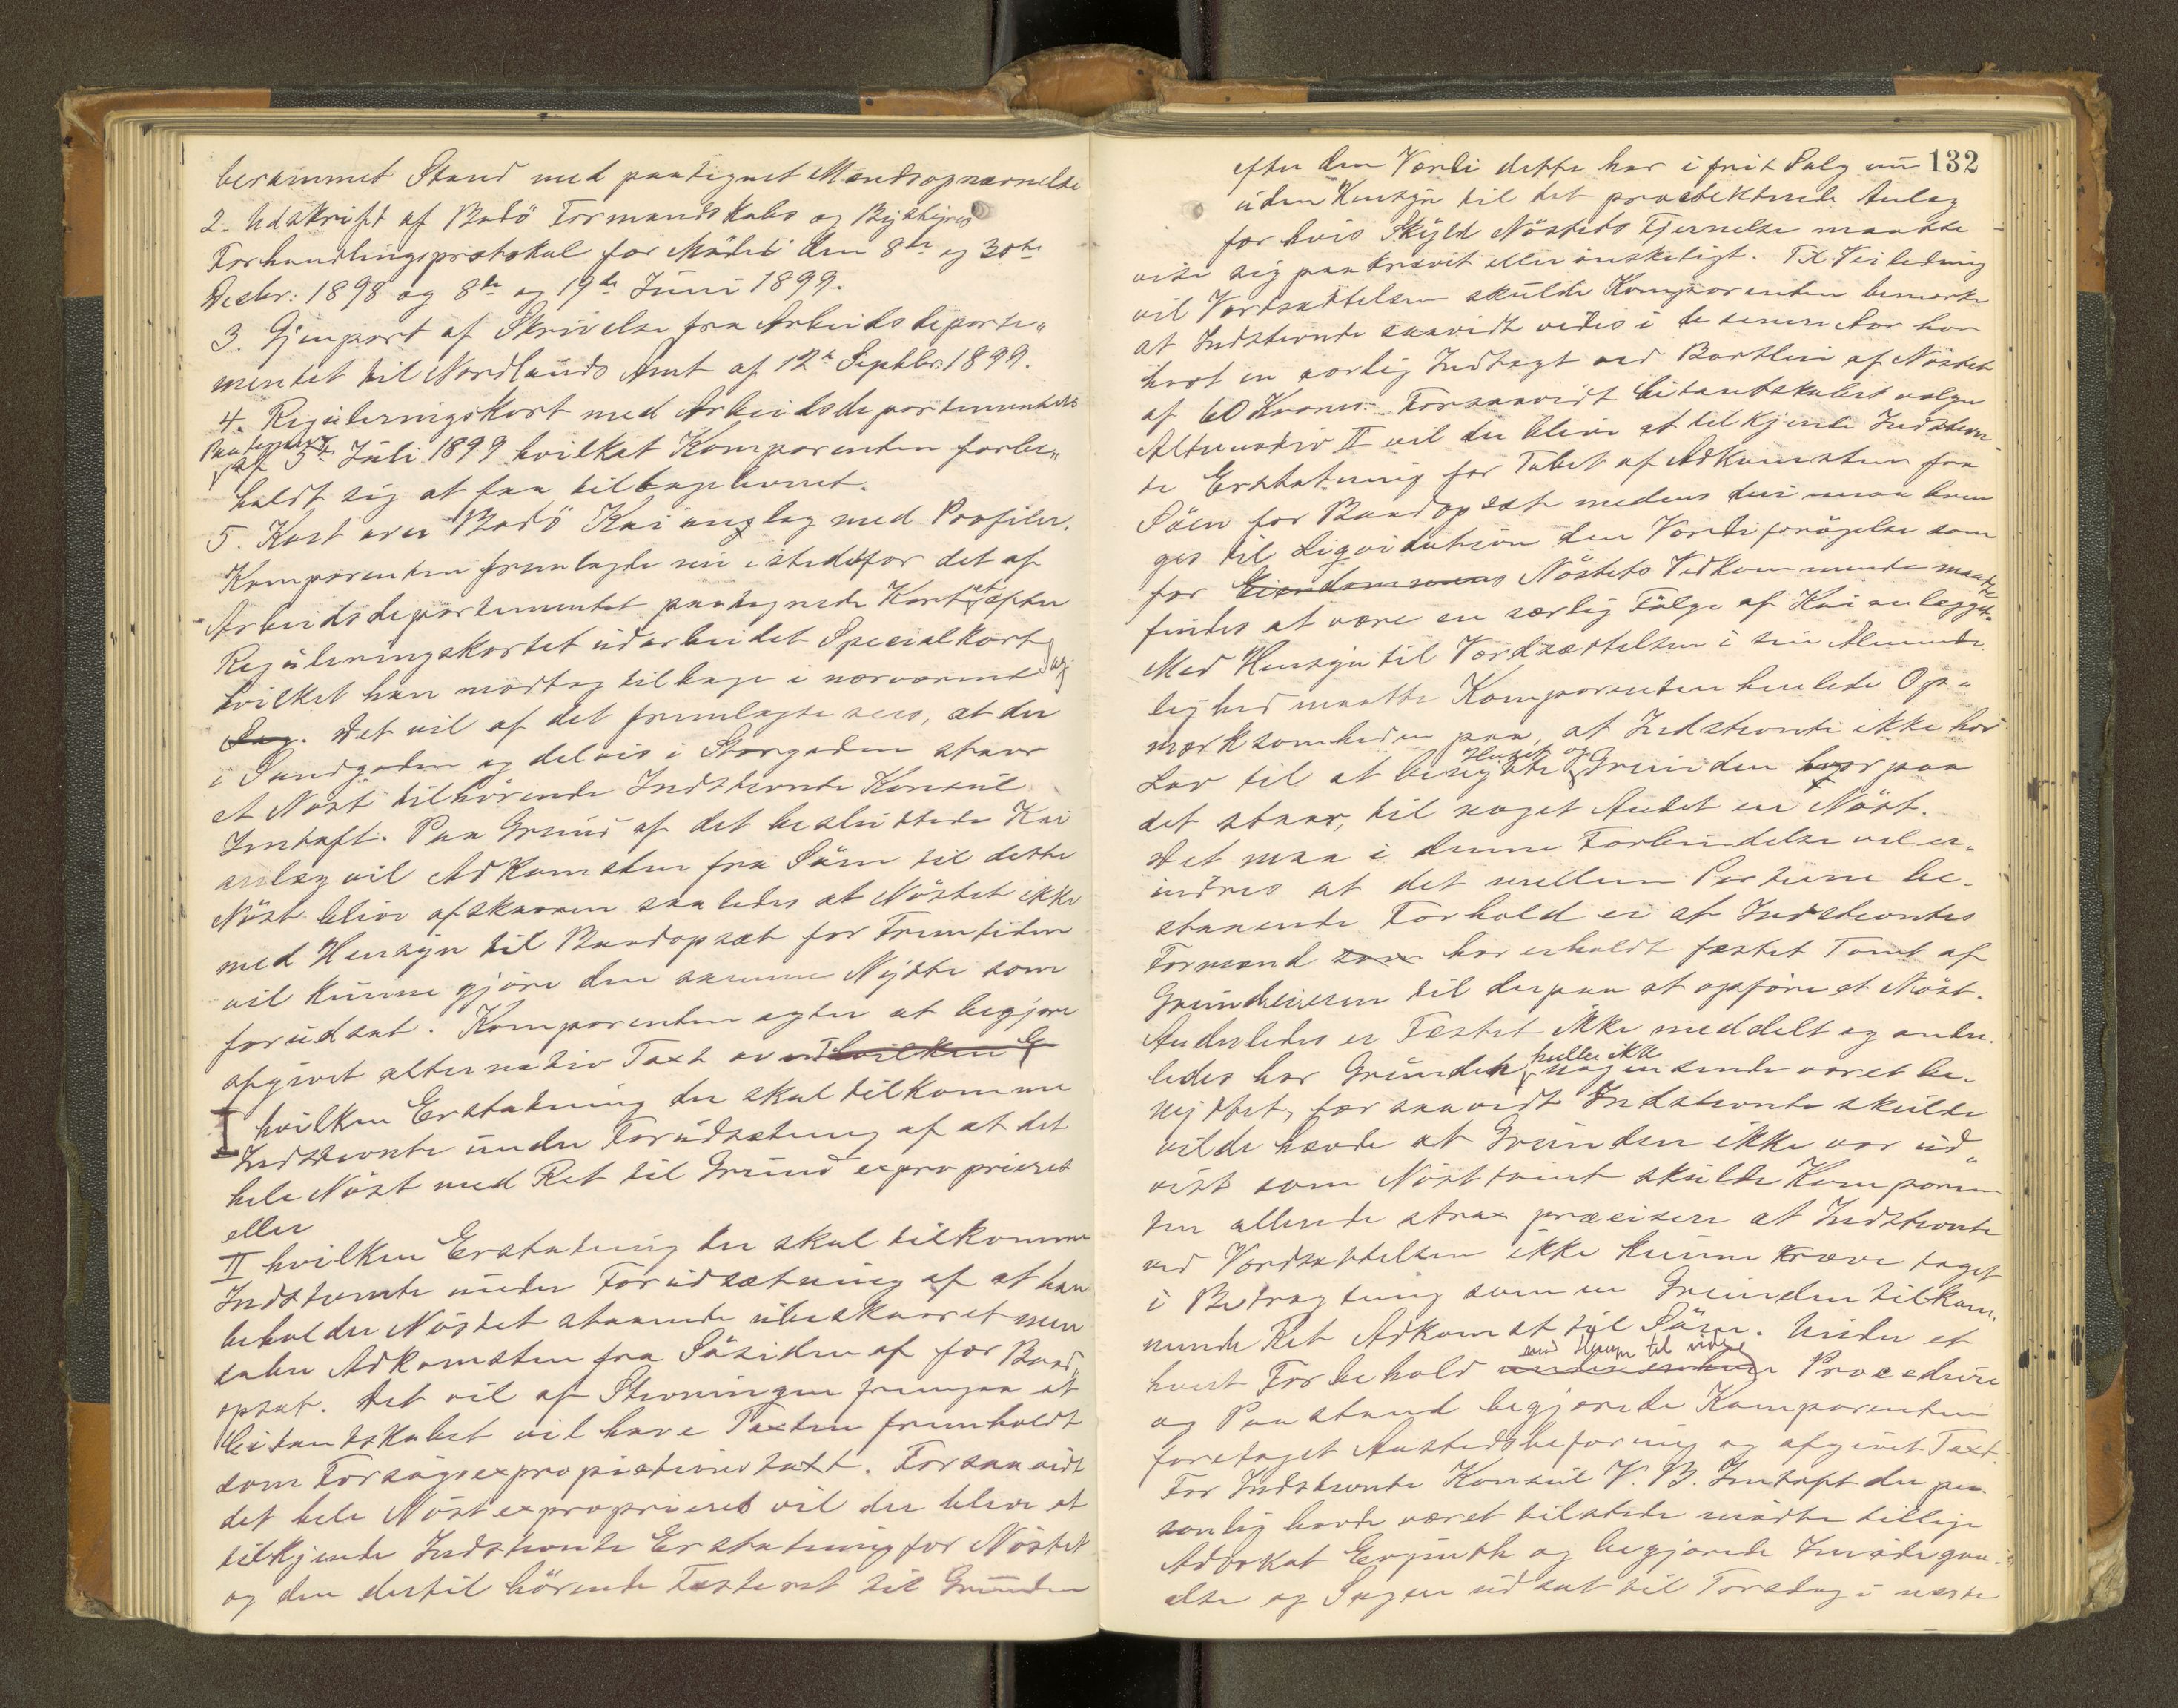 berammet Stand med paategnet Mændsopnævnelse
2. Udskrift af Bodö Formandskabs og Bystyres
Forhandlingsprotokol for Mödet den 8de og 30te
Decbr: 1898 og 8de og 19de Juni 1899.
3. Gjenpart af Skrivelse fra Arbeidsdeparte„
mentet til Nordlands Amt af 12te Septbr. 1899.
4. Reguleringskort med Arbeidsdepartementets
Paategning
af 5te Juli 1899 hvilket Komparenten forbe„
holdt sig at faa tilbageleveret.
5. Kart over Bodö Kaianlæg med Profiler.
Komparenten fremlagde nu istedetfor det af
Arbeidsdepartementet paategnede Kart et efter
Reguleringskortet udarbeidet Specialkart
hvilket han modtog tilbage i nærværende
Sag. Det vil af det fremlagte sees, at der
i Sandgaden og delvis i Storgaden staar
et Nöst tilhörende Indstevnte Konsul
Jentoft. Paa Grund af det besluttede Kai
anlæg vil Adkomsten fra Söen til dette
Nöst blive afskaaren saaledes at Nöstet ikke
med Hensyn til Baadopsæt for Fremtiden
vil kunne gjöre den samme Nytte som
forudsat. Komparenten agter at begjære
afgivet alternativ Taxt over hvilken E
I hvilken Erstatning der skal tilkomme
Indstevnte under Forudsætning af at det
hele Nöst med Ret til Grund exproprieres
eller
II hvilken Erstatning der skal tilkomme
Indstevnte under Forudsætning af at han
beholder Nöstet staaende ubeskaaret men
taber Adkomsten fra Sösiden af for Baad„
opsæt. Det vil af Stevningen fremgaa at
Citantskabet vil have Taxten fremholdt
som Forsögsexpropriationstaxt. Forsaavidt
det hele Nöst exproprieres vil der blive at
tilkjende Indstevnte Erstatning for Nöstet
og den dertil hörende Festeret til Grunden
132
efter den Værdi dette har i frit Salg nu
uden Hensyn til det projekterede Anlæg
for hvis Skyld Nöstets Fjernelse maatte
vise sig paakrævet eller önskeligt. Til Veiledning
ved Værdsættelsen skulde Komparenten bemærke
at Indstevnte saavidt vides i de senere Aar har
havt en aarlig Indtægt ved Bortleie af Nöstet
af 60 Kroner. Forsaavidt Citantskabet vælger
Alternativ II vil der blive at tilkjende Indstevn
te Erstatning for Tabet af Adkomsten fra
Söen for Baadopsæt medens der maa brin
ges til Liqvidation den Værdiforögelse som
for Eiendommens Nöstets Vedkommende maatte
findes at være en særlig Fölge af Kaianlægget.
Med Hensyn til Værdsættelsen i sin Alminde
lighed maatte Komparenten henlede Op„
mærksomheden paa, at Indstevnte ikke har
Lov til at benytte Huset og Grunden hvorpaa
det staar, til noget Andet en Nöst.
Det maa i denne Forbindelse vel er„
indres at det mellem Parterne be„
staaende Forhold er at Indstevntes
Formand som har erholdt fæstet Tomt af
Grundeieren til derpaa at opföre et Nöst.
Anderledes er Fæstet ikke meddelt og ander
ledes har Grunden heller ikke nogensinde været be„
nyttet, for saavidt Indstevnte skulde
ville hævde at Grunden ikke var ud„
vist som Nösttomt skulde Komparen
ten allerede strax præcisere at Indstevnte
ved Værdsættelsen ikke kunne kræve taget
i Betragtning som en Grunden tilkom„
mende Ret Adkomst til Söen. Under et
hvert Forbehold med Hensyn til videre Procedure
og Paastand begjærede Komparenten
foretaget Aastedsbefaring og afgivet Taxt.
For Indstevnte Konsul V. B. Jentoft der per„
sonlig havde været tilstede mödte tillige
Advokat Enjuth og begjærede Imödegaa„
else og Sagen udsat til Torsdag i næste